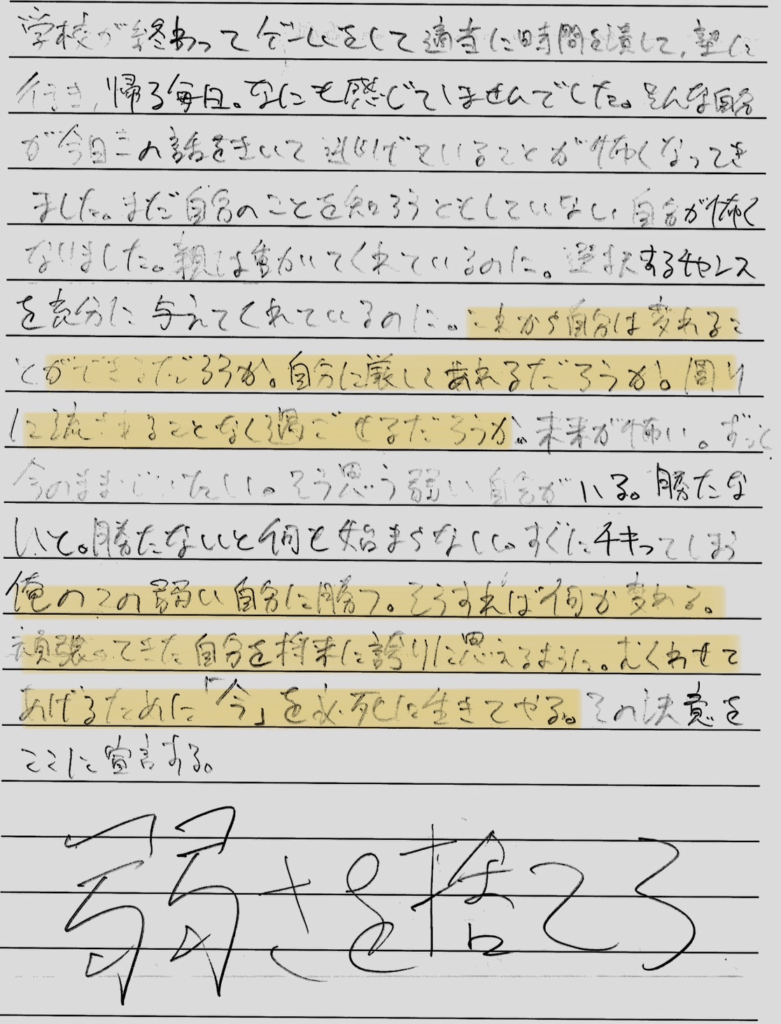 学校が終わってゲームをして適当に時間を潰して、塾に
行き、帰る毎日。なにも感じていませんでした。そんな自分
が今日この話をきいて逃げていることが怖くなってき
ました。まだ自分のことを知ろうともしていない自分が怖く
なりました。親は動いてくれているのに。選択するチャンス
を充分に与えてくれているのに。これから自分は変れるこ
とができるだろうか。自分に厳しくあれるだろうか。周り
に流されることなく過ごせるだろうか。未来が怖い。ずっと
今のままでいたい。そう思う弱い自分がいる。勝たな
いと。勝たないと何も始まらない。すぐにチキってしまう
俺のこの弱い自分に勝つ。そうすれば何か変わる。
頑張ってきた自分を将来に誇りに思えるように。むくわせて
あげるために「今」を必死に生きてやる。その決意を
ここに宣言する。
弱さを捨てろ